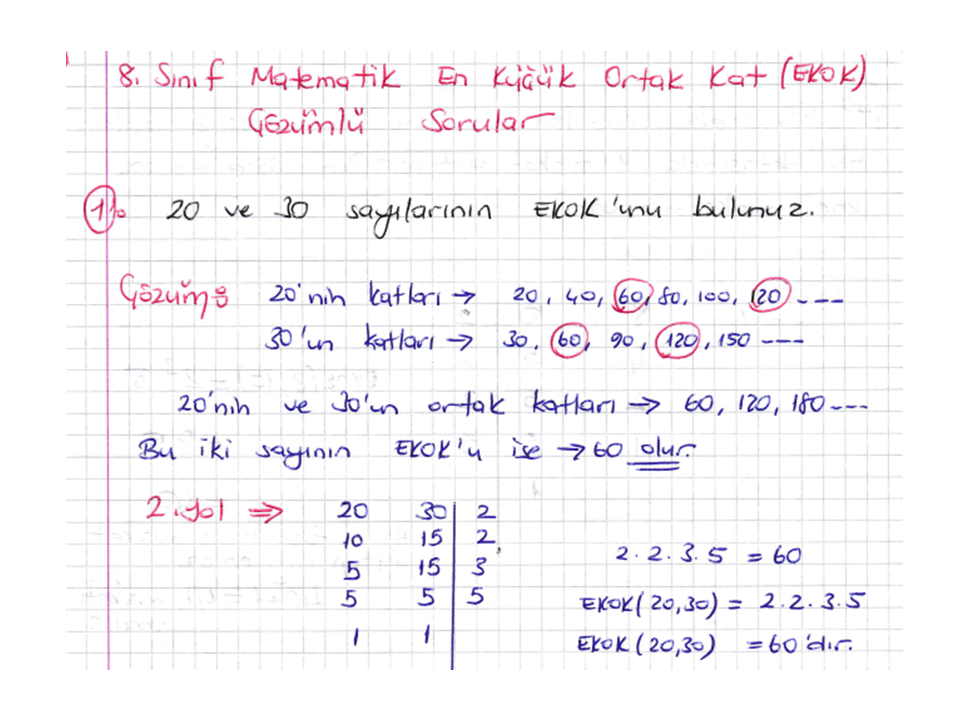 8. Sınıf Matematik En Küçük Ortak Kat (EKOK)
Çözümlü Sorular
1) 20 ve 30 sayılarının EKOK'unu bulunuz.
Çözüm: 20'nin katları → 20, 40, 60, 80, 100, 120 ----
30'un katları → 30, 60, 90, 120, 150 ----
20'nin ve 30'un ortak katları → 60, 120, 180 ----
Bu iki sayının EKOK'u ise → 60 olur.
2. yol ⇒ 20 30 | 2
10 15 | 2
5 15 | 3
5 5 | 5
1 1 |
2 . 2 . 3 . 5 = 60
EKOK(20,30) = 2 . 2 . 3 . 5
EKOK(20,30) = 60'dır.